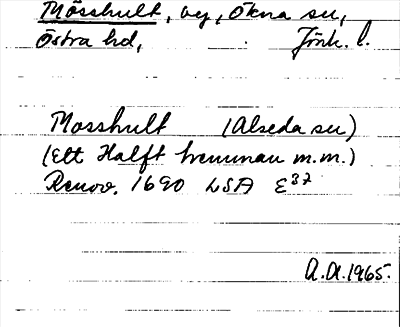 Mosshult, by, Ökna sn,
Östra hd, Jönk. l.
Mosshult (Alseda sn)
(Ett Halft hemman m.m.)
Renov. 1690 LSA E37
A.A. 1965.